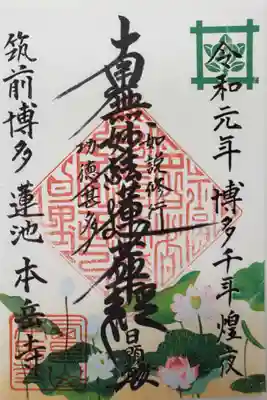 令和元年 博多千年煌夜
如説修行
南無妙法蓮華経
功徳甚多
筑前博多 蓮池 本岳寺